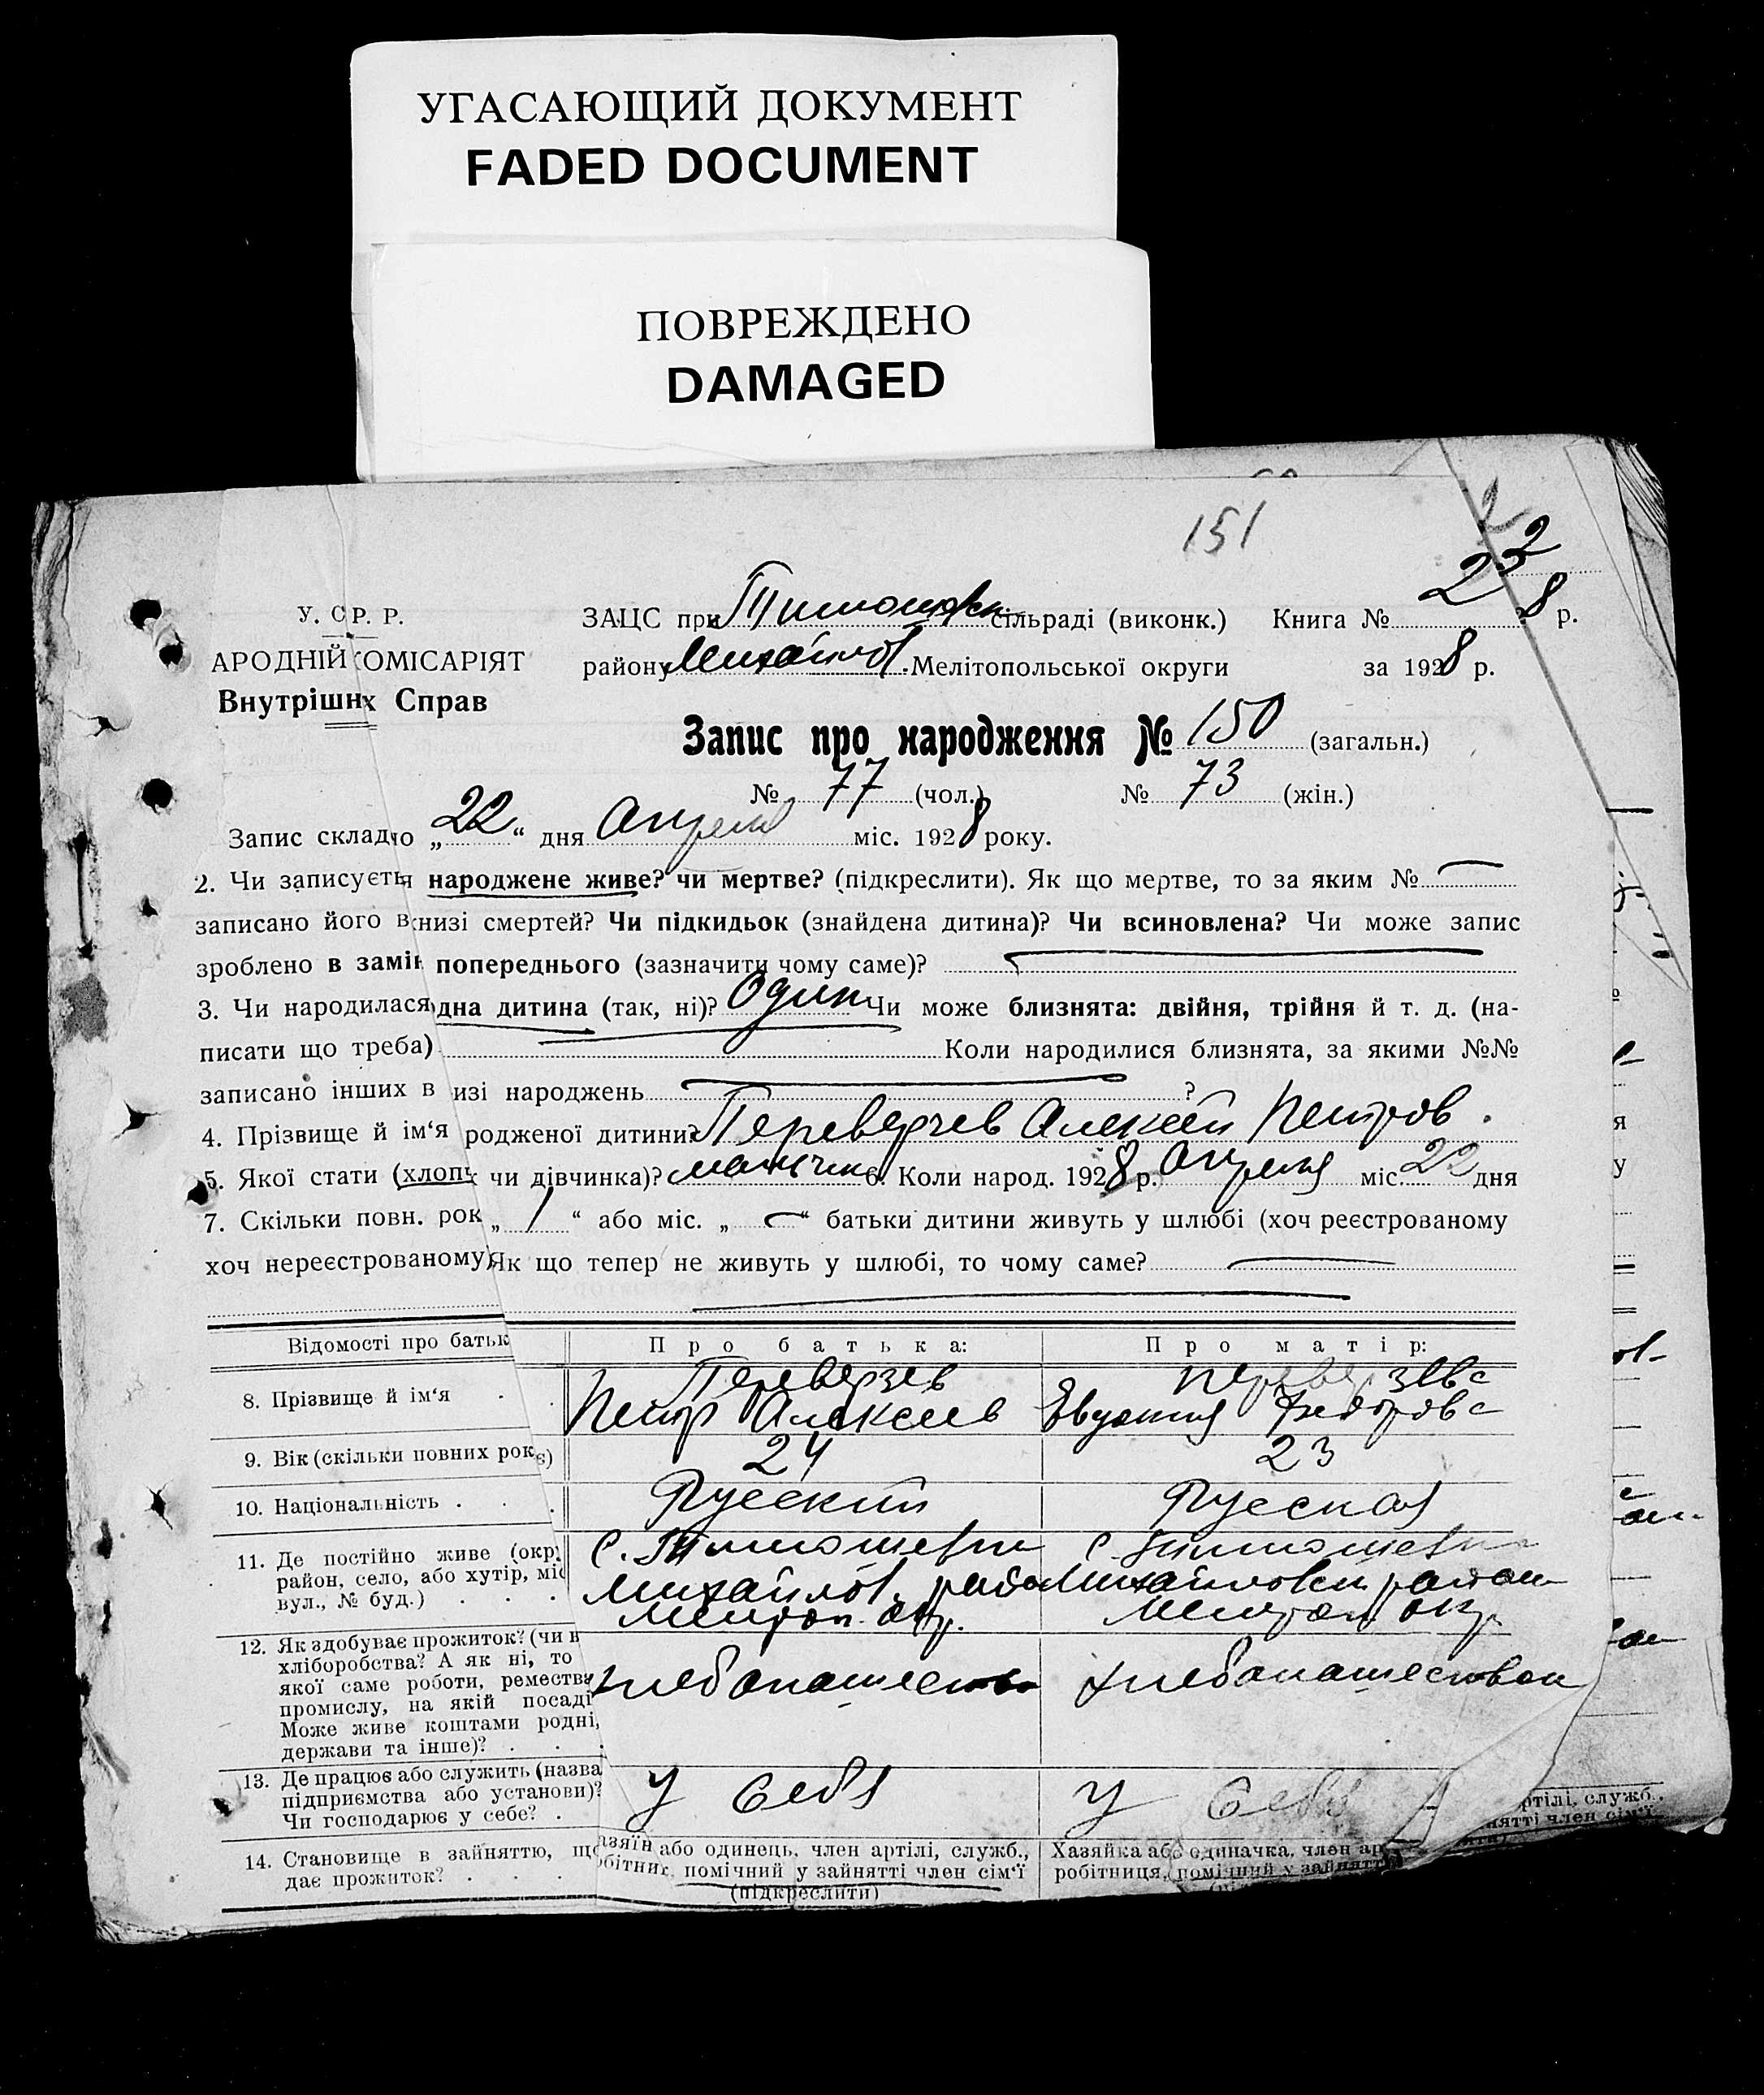 УГАСАЮЩИЙ ДОКУМЕНТ
FADED DOCUMENT
ПОВРЕЖДЕНО
DAMAGED
151
22
У. С Р. Р.
АРОДНІЙ КОМІСАРІЯТ
Внутрішніх Справ
ЗАЦС при Тимошевск сільраді (виконк.) Книга № 8 р.
району Михайлов. Мелітопольської округи за 1928 р.
Запис про народження № 150 (загальн.)
№ 77 (чол.) № 73 (жін.)
Запис складно „22“ дня Апреля міс. 1928 року.
2. Чи записується народжене живе? чи мертве? (підкреслити). Як що мертве, то за яким №
записано його в книзі смертей? Чи підкидьок (знайдена дитина)? Чи всиновлена? Чи може запис
зроблено в замін попереднього (зазначити чому саме)?
3. Чи народилася одна дитина (так, ні)? Один Чи може близнята: двійня, трійня й т. д. (на-
писати що треба) Коли народилися близнята, за якими №№
записано інших в изі народжень ?
4. Прізвище й ім‘я родженої дитини? Переверзев Алексей Петров.
5. Якої стати (хлопч чи дівчинка)? мальчик 6. Коли народ. 1928 р. Апреля міс. 22 дня
7. Скільки повн. рок „1“ або міс. „—“ батьки дитини живуть у шлюбі (хоч реєстрованому
хоч нереєстрованому) Як що тепер не живуть у шлюбі, то чому саме?
Відомості про батьк Про батька: Про матір:
8. Прізвище й ім‘я . Переверзев Переверзева
Петр Алексеев Евдокия Федорова
9. Вік (скільки повних років) 24 23
10. Національність . . . Русский Русская
11. Де постійно живе (окр. С. Тимошевка С. Тимошевка
район, село, або хутір, міс Михайлов. район Михайловск. район
вул., № буд.) . . . Мелитоп. окр. Мелитоп окр
12. Як здобуває прожиток? (чи в
хліборобства? А як ні, то
якої саме роботи, ремества Хлебопашество Хлебопашеством
промислу, на якій посаді
Може живе коштами родні,
держави та інше)? . . .
13. Де працює або служить (назва
підприємства або установи)? У себя У себя
Чи господарює у себе? .
14. Становище в зайняттю, що азяїн або одинець, член артілі, служб., Хазяйка або одиначка, член ар
дає прожиток? . . . обітник, помічний у зайнятті член сім‘ї робітниця, помічний у зайнятті
(підкреслити)
ртілі, служб.,
нятті член сім‘ї